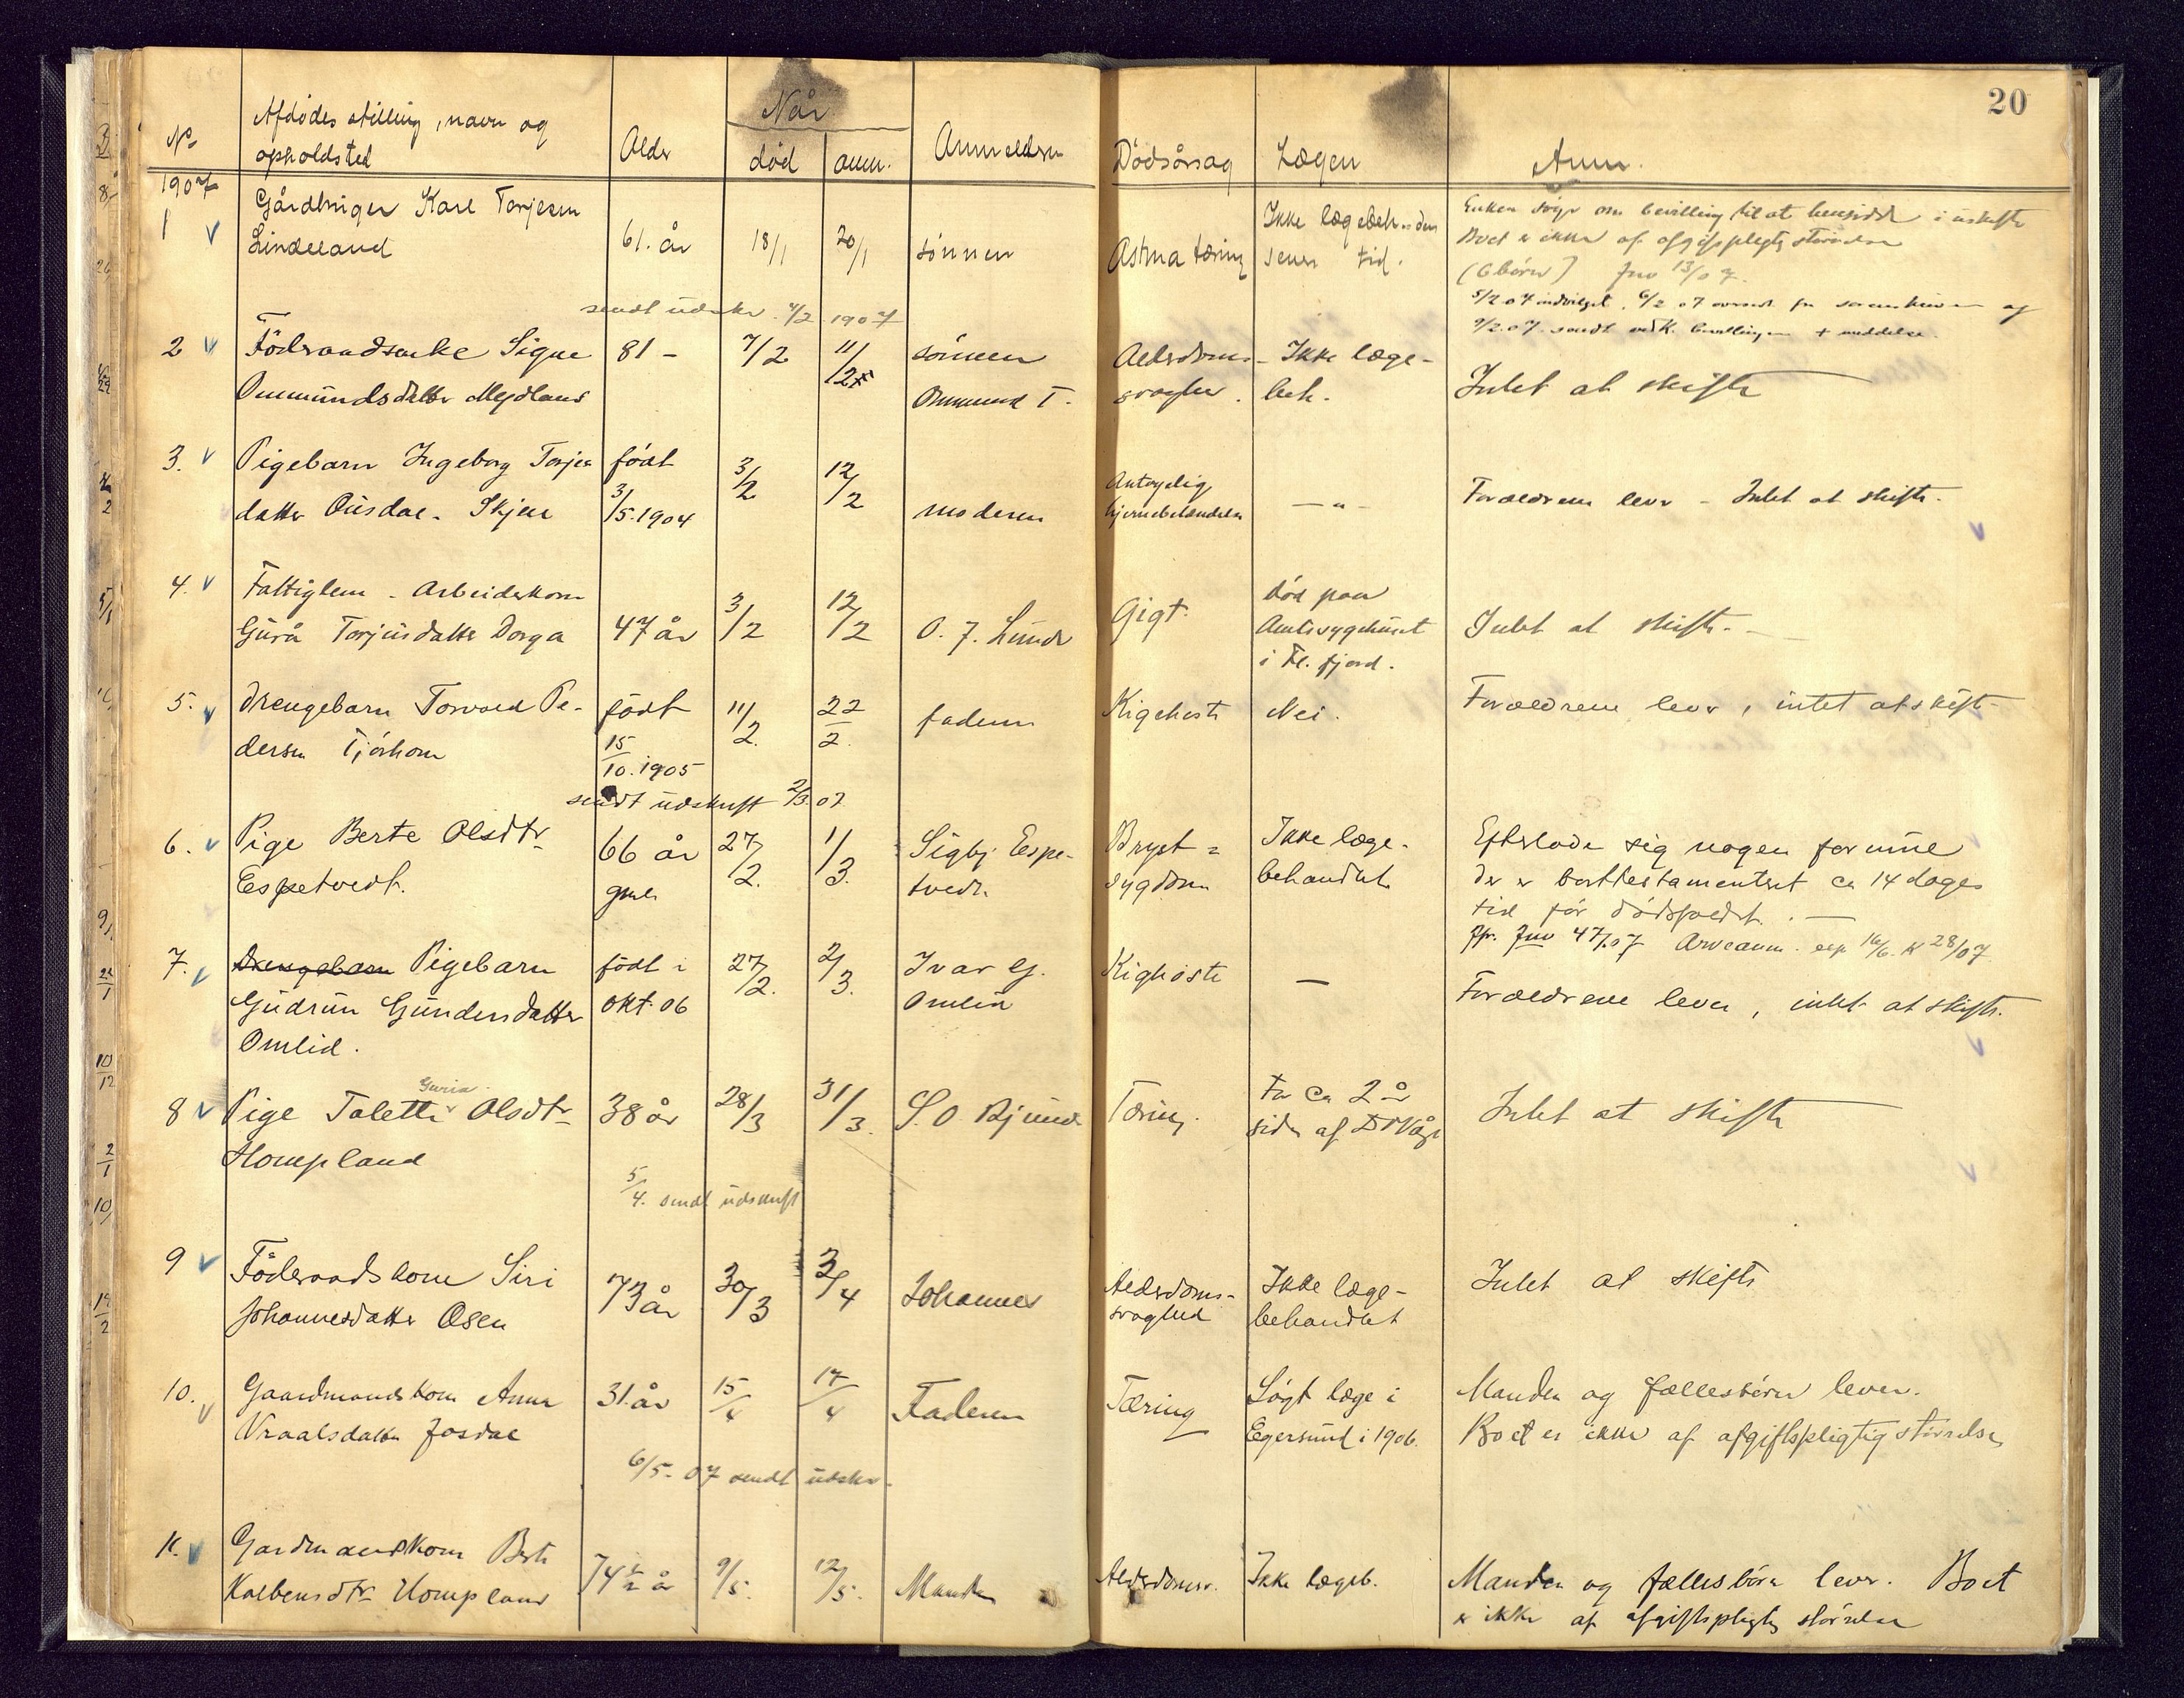 20
Når
No Afdødes stilling, navn og Alder død anm. Anmelderen Dødsårsag Lægen Anm.
opholdsted
1907
1 Gårdbruger Karl Torjesen 61. år 18/1 20/1 sønnen Astma tæring Ikke lægebeh. den
Lindeland
senere tid.
Enken søger om bevilling til at hensidde i uskifte
Boet er ikke af afgiftspligtig størrelse
(6 børn) Jnr 13/07.
5/2 07 indvilget. 6/2 07 fra sorenskriveren og
9/2.07. sendt vedk. bevillingen + meddelse.
sendt udskr. 4/2 1907
2 Föderaadsenke Signe 81 - 7/2 11/2 sönnen Alderdoms- Ikke læge- Intet at skifte
Ommundsdatter Mydland Ommund T. svaghed. beh.
3. Pigebarn Ingeborg Torjes född 3/2 12/2 moderen Antagelig -"- Forældrene lever - Intet at skifte.
datter Ousdal. Skjen 3/5.1904 hjernebetændelse
4. Fattiglem - Arbeiderkone 47 år 3/2 12/2 O. J. Lunde Gigt. død paa Intet at skifte. -
Gurå Torjusdatter Dorga Amtssygehuset
i Fl. fjord.
5. Drengebarn Torvald Pe- født 11/2. 22/2. faderen Kighoste Nei. Forældrene lever, intet at skifte
dersen Tjørhom 15/10.1905
sendt udskrift 2/3 07
6. Pige Berte Olsdtr 66 år 27/2. 1/3. Sigbj. Espe- Bryst= Ikke læge-
Espetvedt. gml. tvedt. sygdom behandlet
Efterlader sig nogen formue
der er borttestamenteret ca 14 dages
tid før dødsfaldet. -
Jfr. Jnr 47/07 Arveanm. exp 16/6. k 28/07.
7. Drengebarn Pigebarn født i 27/2. 2/3. Ivar G. Kighoste - Forældrene lever, intet at skifte.
Gudrun Gundersdatter okt. 06 Omlid
Omlid.
Guria
8 Pige Taletti Olsdtr 38 år 28/3 31/3. S. O. Bjunes Tæring. For ca 2 år Intet at skifte
Hompland siden af Dr Våge
5/4. sendt udskrift
9 Föderaadskone Siri 73 år 30/3 3/4 Johannes Alderdoms- Ikke læge- Intet at skifte
Johannesdatter Osen svaghed behandlet
10. Gaardmandskone Anna 31. år 15/4 17/4 Faderen Tæring Søgt læge i Manden og fællesbørn lever.
Vraalsdatter Josdal Egersund i 1906. Boet er ikke af afgiftspligtig størrelse
6/5- 07 sendt udskr.
11. Gardmandskone Berte 74 1/2 år 9/5. 12/5. Manden Alderdomsv. Ikke lægeb. Manden og fællesbørn lever. Boet
Kolbensdtr Hompland er ikke af afgiftspligtig størrelse